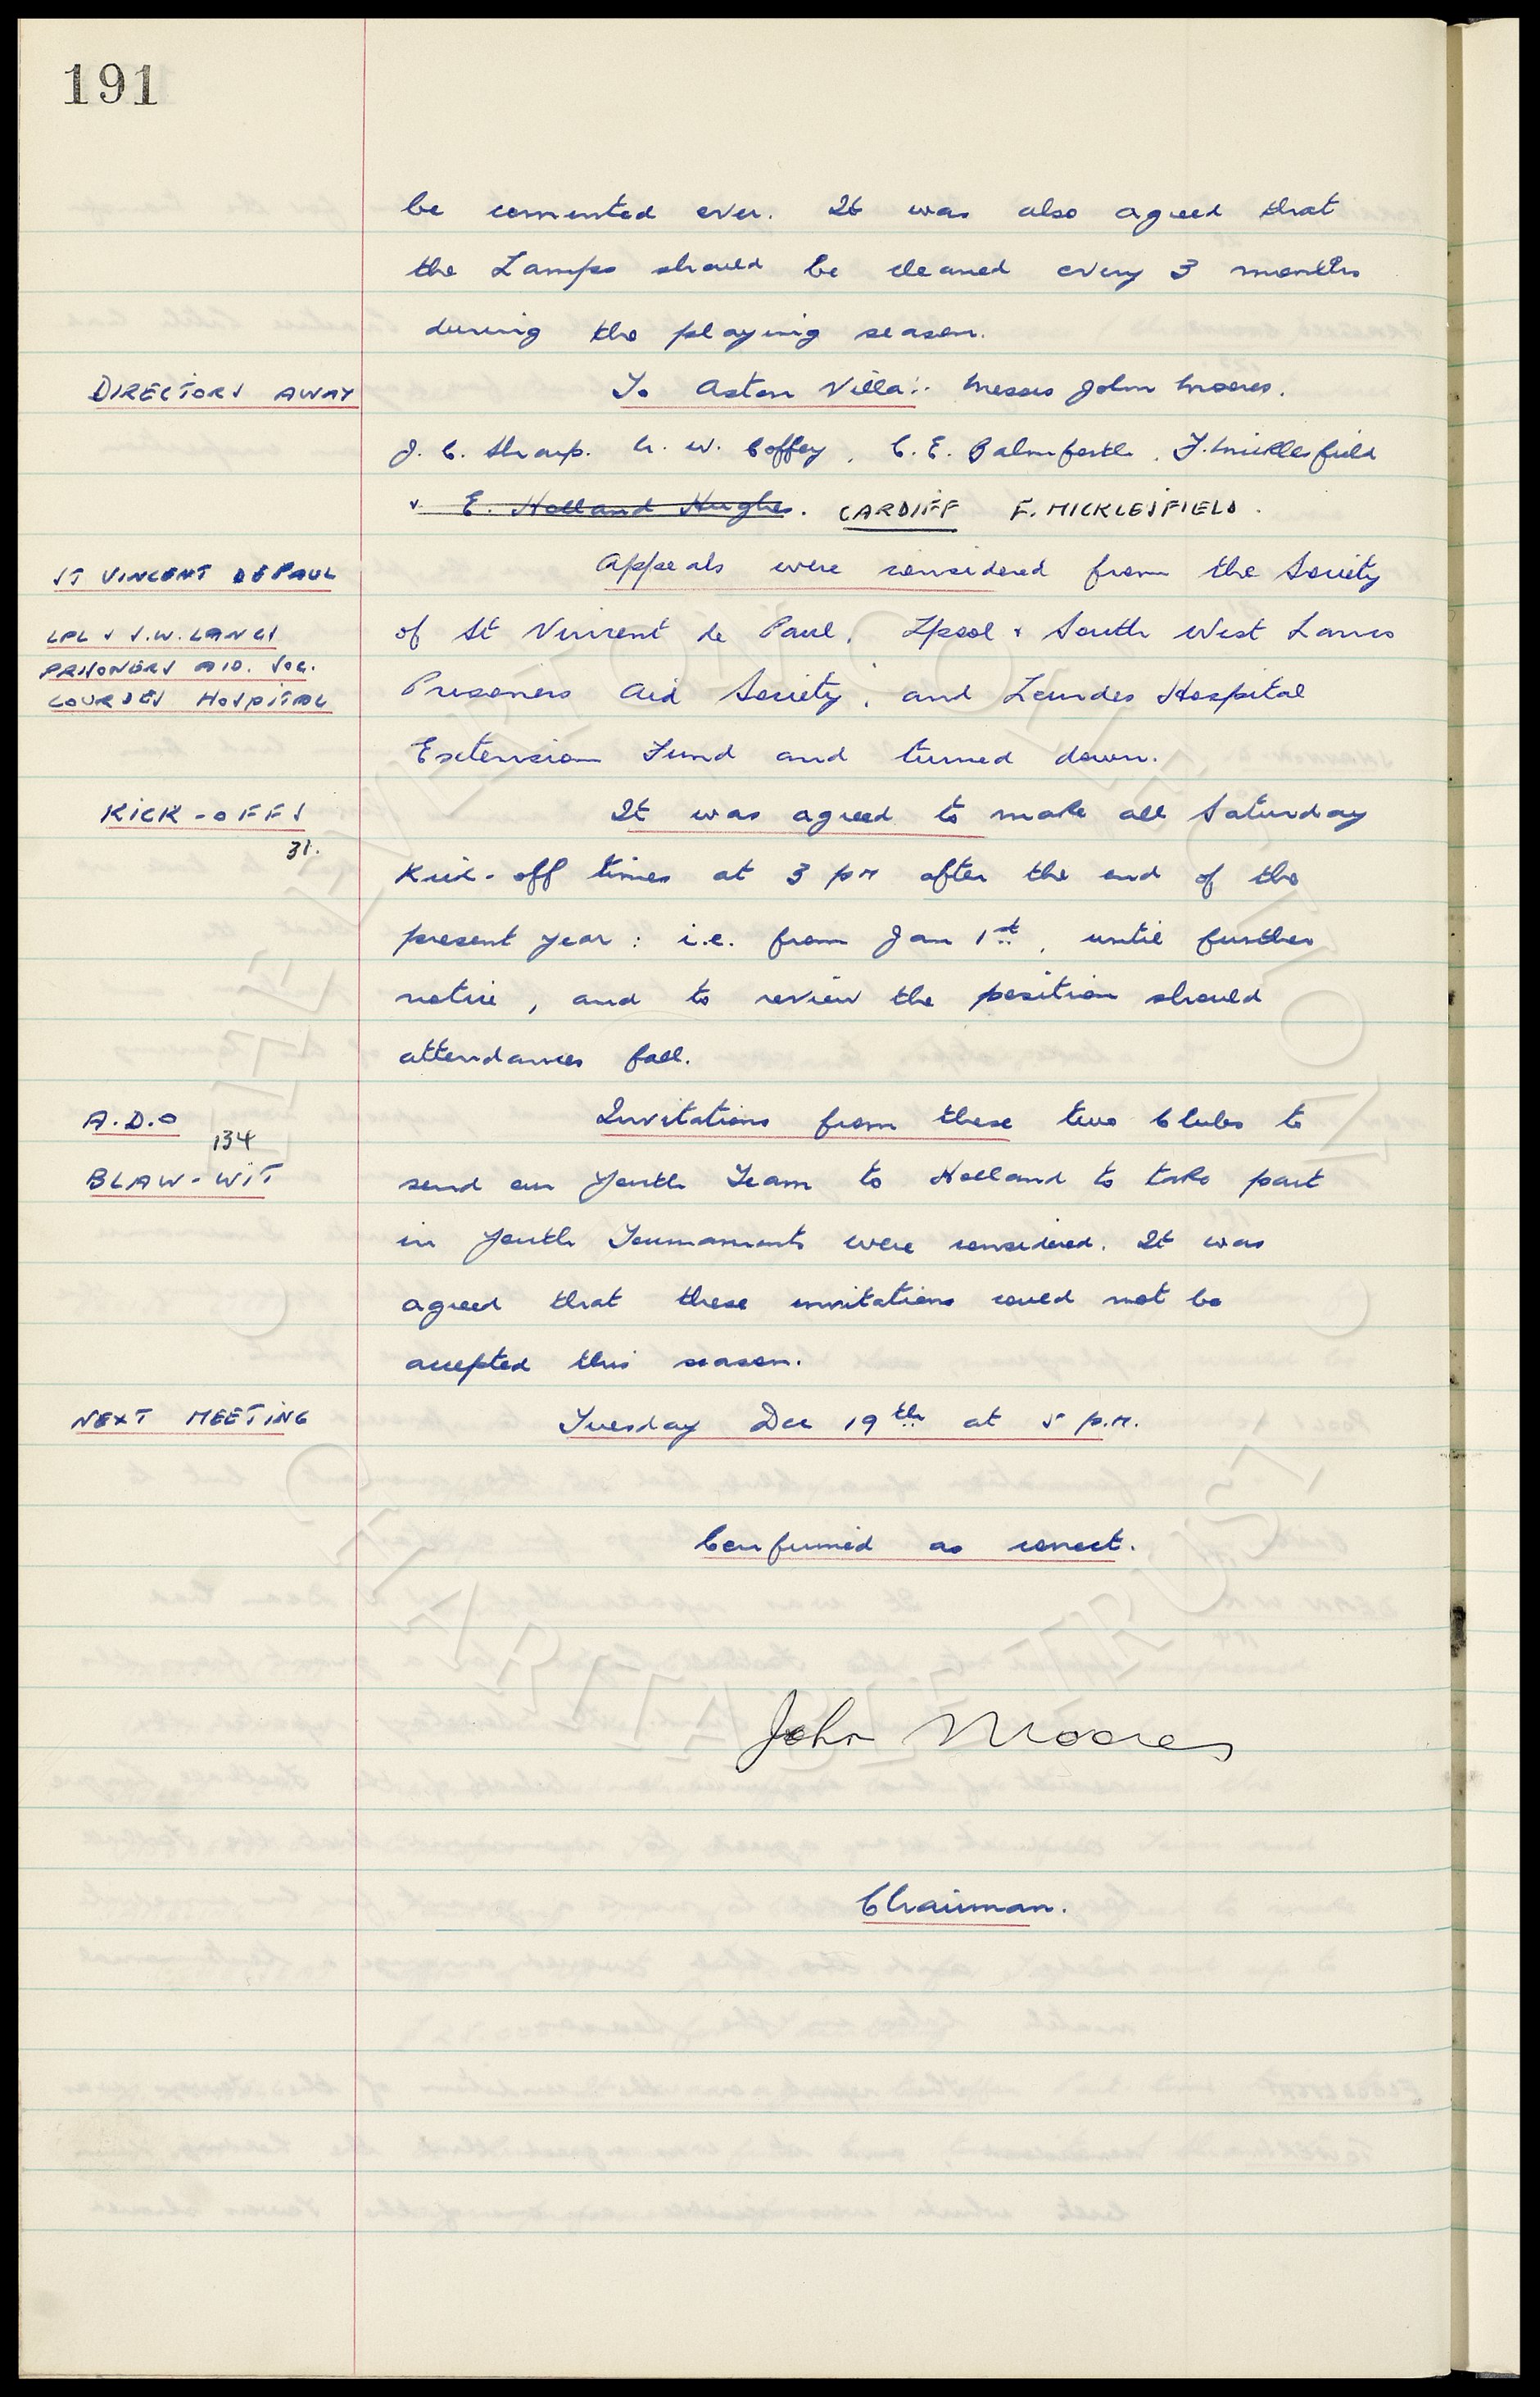 191
be cemented over. It was also agreed that
the Lamps should be cleaned every 3 months
during the playing season.
DIRECTORS AWAY To Aston Villa:- Messrs John Moores.
J. C. Sharp. G. W. Coffey, C. E. Balmforth, F. Micklesfield
& E. Holland Hughes. CARDIFF F. MICKLESFIELD.
ST VINCENT DE PAUL Appeals were considered from the Society
LPL & S.W. LANCS of St Vincent de Paul, Lpool & South West Lancs
PRISONERS AID. SOC.
LOURDES HOSPITAL Prisoners Aid Society, and Lourdes Hospital
Extension Fund and turned down.
KICK-OFFS It was agreed to make all Saturday
31. Kick-off times at 3 pm after the end of the
present year: i.e. from Jan 1st, until further
notice, and to review the position should
attendances fall.
A.D.O Invitations from these two Clubs to
134
BLAW-WIT send our Youth Team to Holland to take part
in Youth Tournaments were considered. It was
agreed that these invitations could not be
accepted this season.
NEXT MEETING Tuesday Dec 19th at 5 p.m.
Confirmed as correct.
John Moores
Chairman.